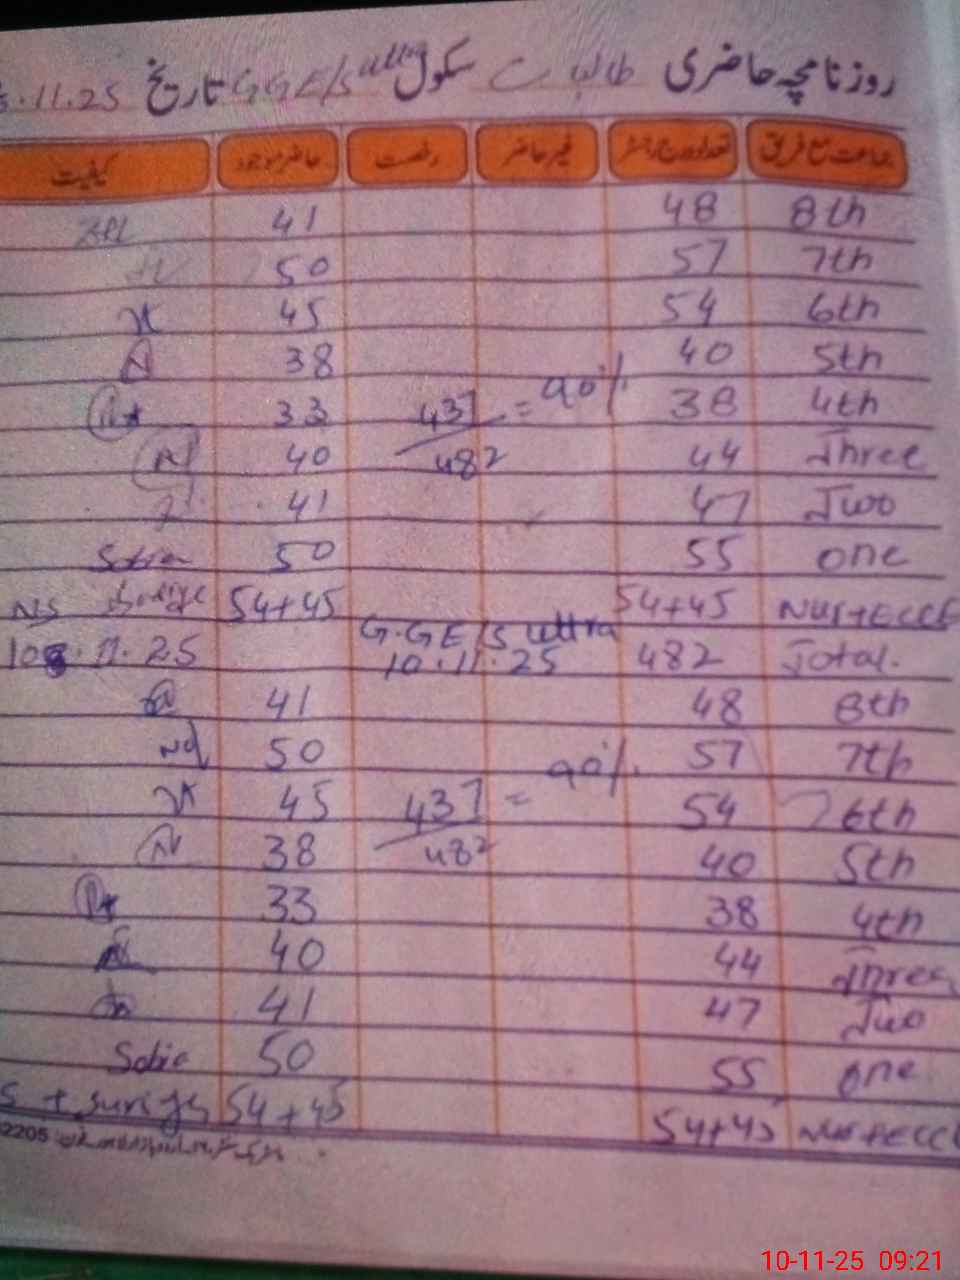 روزنامچہ حاضری طالبات سکول GGE/S ultra تاریخ .11.25
جماعت مع فریق تعداد درج رجسٹر غیر حاضر رخصت حاضر موجود کیفیت
8th 48 41
7th 57 50
6th 54 45
5th 40 38
4th 38 437 = 90% 33
Three 44 482 40
Two 47 41
one 55 50
Nur+ECCE 54+45 54+45
Total. 482 G.GE/S ultra 10.11.25 10.11.25
8th 48 41
7th 57 50
6th 54 437 = 90% 45
5th 40 482 38
4th 38 33
Three 44 40
Two 47 41
one 55 50 Sobia
Nur+ECCE 54+45 54+45
2205
10-11-25 09:21